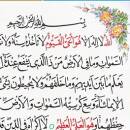 بسم الله الرحمن الرحيم
الله لا إله إلا هو الحي القيوم لا تأخذه سنة ولا
السموات وما في الأرض من ذا الذي يشفع
يعلم ما بين أيديهم وما خلفهم ولا يحيطون
إلا بما شاء وسع كرسيه السموات والأرض
وهو العلي العظيم لا إكراه في الدين